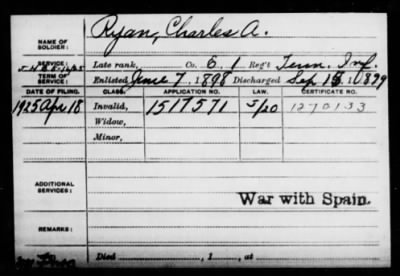 NAME OF SOLDIER: Ryan, Charles A.
SERVICE: Late rank, Co. E. 1 Reg't Tenn. Inf.
TERM OF SERVICE: Enlisted June 7, 1898 Discharged
DATE OF FILING. CLASS. APPLICATION NO. LAW. CERTIFICATE NO.
1925 Apr 18 Invalid, 1517571 5/20 1270133
Widow,
Minor,
ADDITIONAL SERVICES:
War with Spain.
REMARKS:
Died , 1 , at